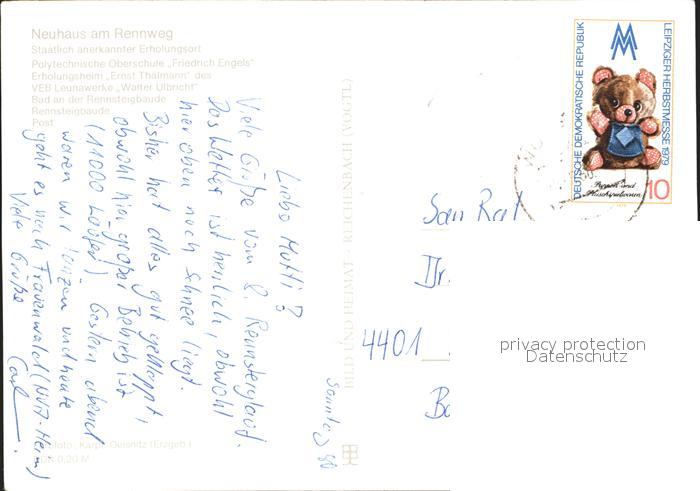 Neuhaus am Rennweg
Staatlich anerkannter Erholungsort
Polytechnische Oberschule „Friedrich Engels"
Erholungsheim „Ernst Thälmann" des
VEB Leunawerke „Walter Ulbricht"
Bad an der Rennsteigbaude
Rennsteigbaude
Post
Liebe Mutti!
Viele Grüße vom 8. Rennsteiglauf.
Das Wetter ist herrlich, obwohl
hier oben noch Schnee liegt.
Bisher hat alles gut geklappt,
obwohl hier großer Betrieb ist
(11000 Läufer). Gestern abend
waren wir tanzen und heute
geht es nach Frauenwald (NVA-Heim)
Viele Grüße
Sonntag 80
Foto: Karpf, Oelsnitz (Erzgeb.)
0,20 M
BILD UND HEIMAT · REICHENBACH (VOGTL)
DEUTSCHE DEMOKRATISCHE REPUBLIK
LEIPZIGER HERBSTMESSE 1979
Puppen und
Plüschspielwaren
10
San Rat
Dr.
4401
privacy protection
Datenschutz